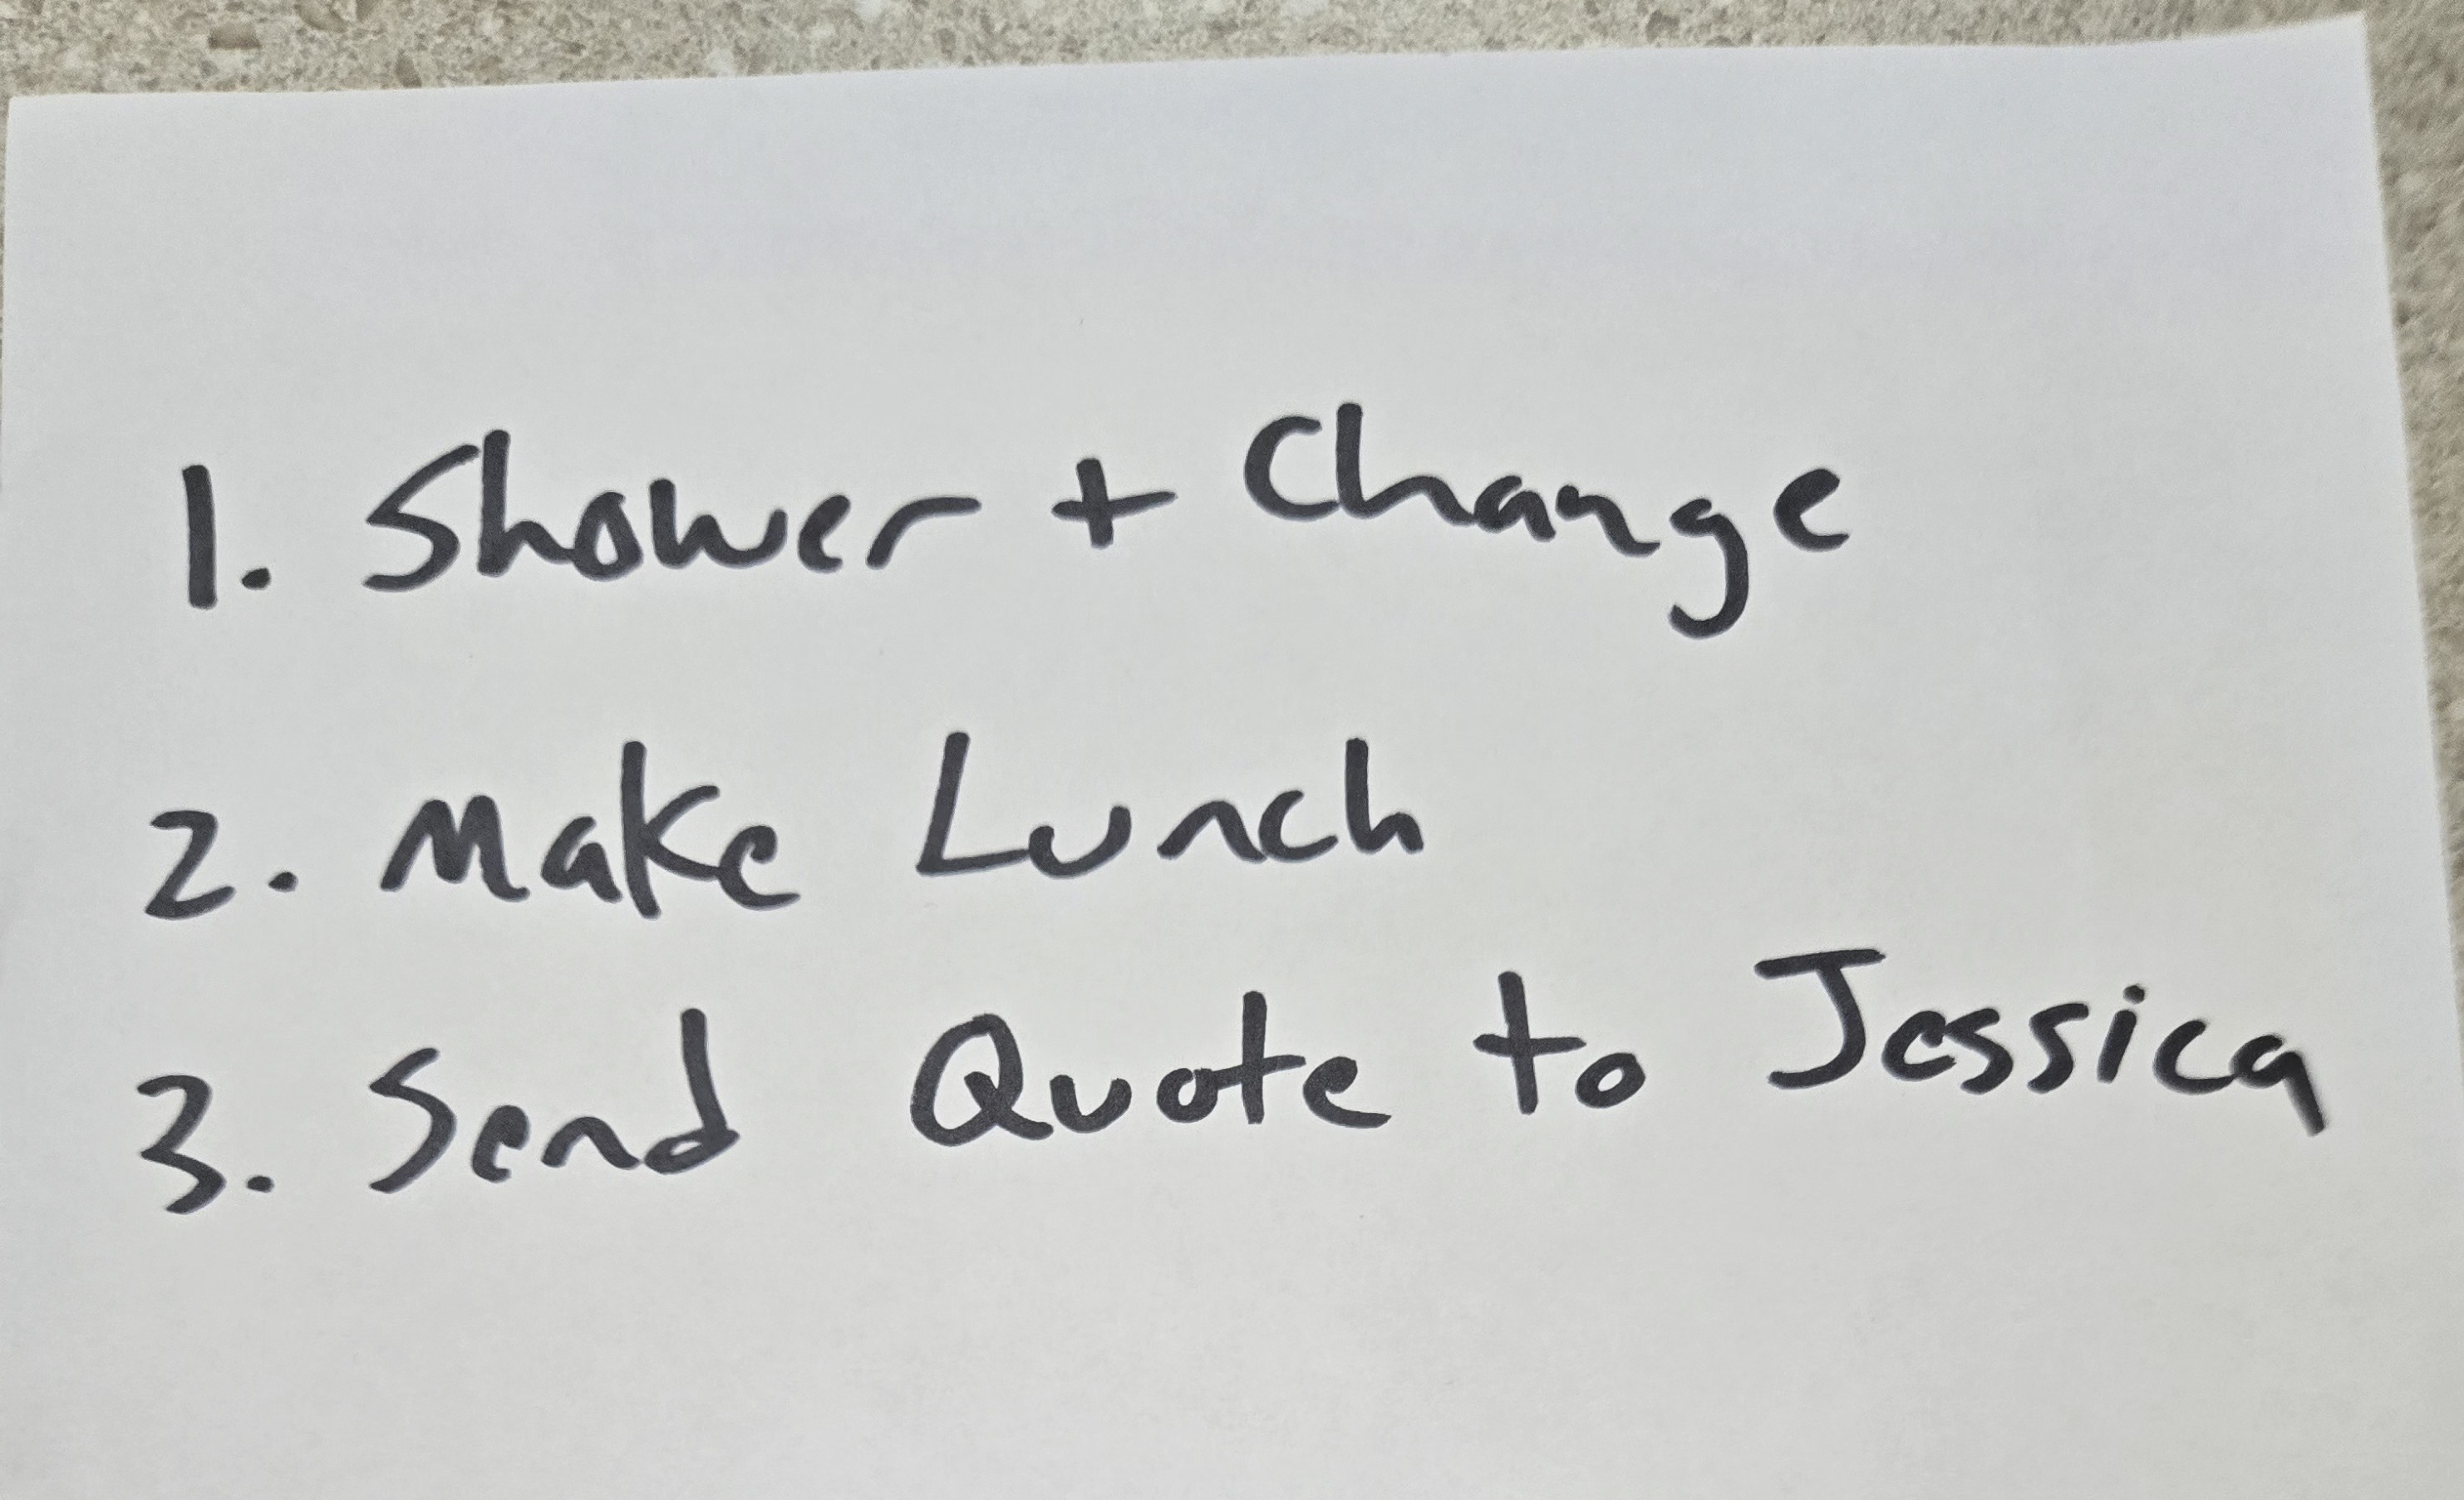 1. Shower + Change
2. Make Lunch
3. Send Quote to Jessica